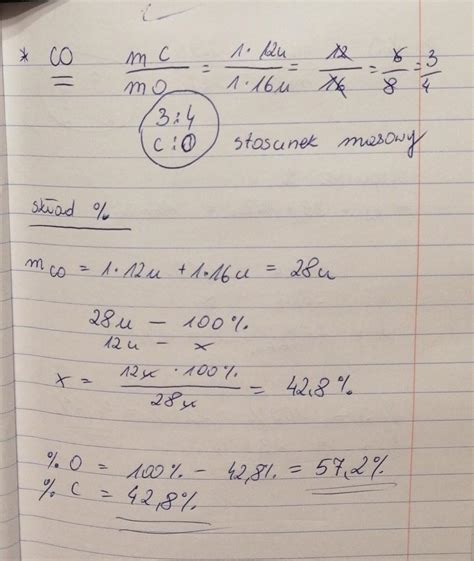 * CO mC/mO = 1·12u/1·16u = 12/16 = 6/8 = 3/4
3:4
C:O stosunek masowy
skład %
mCO = 1·12u + 1·16u = 28u
28u — 100%
12u — x
x = 12u · 100%/28u = 42,8%
% O = 100% - 42,8% = 57,2%
% C = 42,8%